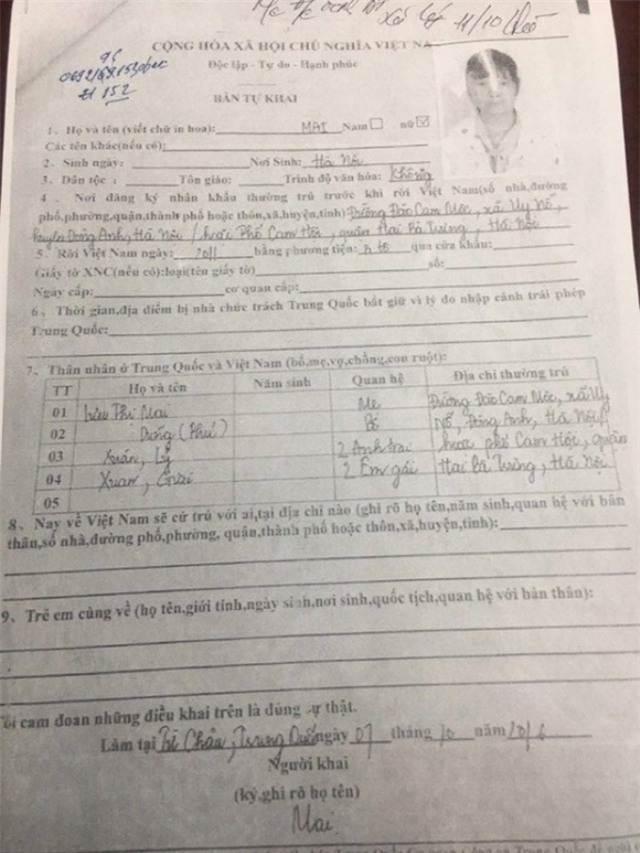 11/10
CỘNG HÒA XÃ HỘI CHỦ NGHĨA VIỆT NA
Độc lập - Tự do - Hạnh phúc
BẢN TỰ KHAI
1、Họ và tên (viết chữ in hoa): MAI Nam☐ nữ☑
Các tên khác(nếu có):
2、Sinh ngày: Nơi Sinh: Hà Nội
3、Dân tộc : Tôn giáo: Trình độ văn hóa: Không
4 、Nơi đăng ký nhân khẩu thường trú trước khi rời Việt Nam(số nhà,đường
phố,phường,quận,thành phố hoặc thôn,xã,huyện,tỉnh): Đường Đào Cam Mộc, xã Uy Nỗ,
huyện Đông Anh, Hà Nội / hoặc Phố Cam Hội, quận Hai Bà Trưng, Hà Nội
5、Rời Việt Nam ngày: 2011 bằng phương tiện: ô tô qua cửa khẩu:
Giấy tờ XNC(nếu có):loại(tên giấy tờ) số:
Ngày cấp: cơ quan cấp:
6、Thời gian,địa điểm bị nhà chức trách Trung Quốc bắt giữ vì lý do nhập cảnh trái phép
Trung Quốc:
7、Thân nhân ở Trung Quốc và Việt Nam (bố,mẹ,vợ,chồng,con ruột):
TT Họ và tên Năm sinh Quan hệ Địa chỉ thường trú
01 Lưu Thi Mai Mẹ Đường Đào Cam Mộc, xã Uy
02 (Phú) Bố Nỗ, Đông Anh, Hà Nội /
03 Xuân, Lý 2 Anh trai hoặc phố Cam Hội, quận
04 Xuan, 2 Em gái Hai Bà Trưng, Hà Nội
05
8、Nay về Việt Nam sẽ cứ trú với ai,tại địa chỉ nào (ghi rõ họ tên,năm sinh,quan hệ với bản
thân,số nhà,đường phố,phường, quận,thành phố hoặc thôn,xã,huyện,tỉnh):
9、Trẻ em cùng về (họ tên,giới tính,ngày sinh,nơi sinh,quốc tịch,quan hệ với bản thân):
ôi cam đoan những điều khai trên là đúng sự thật.
Làm tại Châu, Trung Quốc ngày 07 tháng 10 năm 2016
Người khai
(ký,ghi rõ họ tên)
Mai